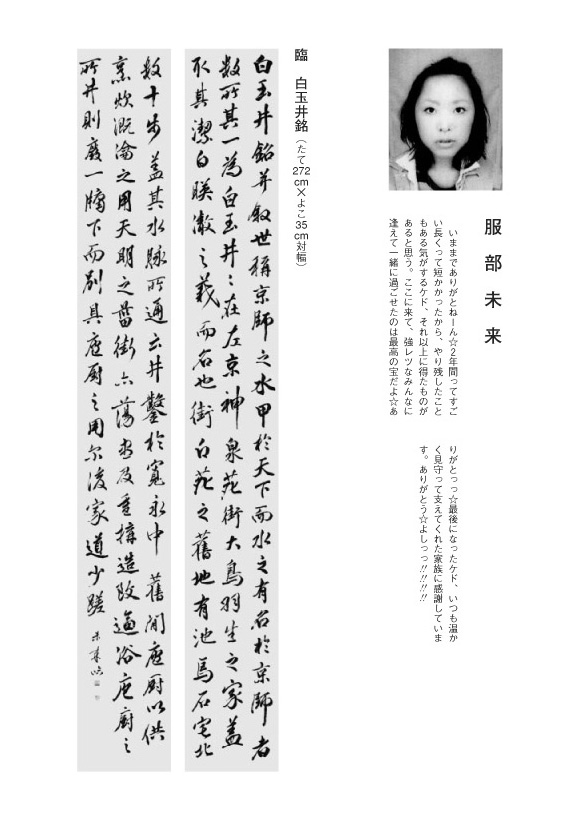 服部未来
いままでありがとねーん☆2年間ってすご
い長くって短かかったから、やり残したこと
もある気がするケド、それ以上に得たものが
あると思う。ここに来て、強レツなみんなに
逢えて一緒に過ごせたのは最高の宝だよ☆あ
りがとっっ☆最後になったケド、いつも温か
く見守って支えてくれた家族に感謝していま
す。ありがとう☆よしっっ!!!!!!
臨 白玉井銘(たて272cm×よこ35cm対幅)
白玉井銘并叙世稱京師之水甲於天下而水之有名於京師者
數所其一為白玉井〻在左京神泉苑街大鳥羽生之家蓋
取其潔白暎澈之義而名也街白苑之舊地有池馬石宅北
數十步蓋其水脉所通云井鑿於寬永中舊閒庖厨以供
烹炊漑瀹之用天明之菑街亦蕩及重構造改逼浴庖厨之
所井則廢一牖下而別具庖厨之用尓後家道少蹉 未来臨